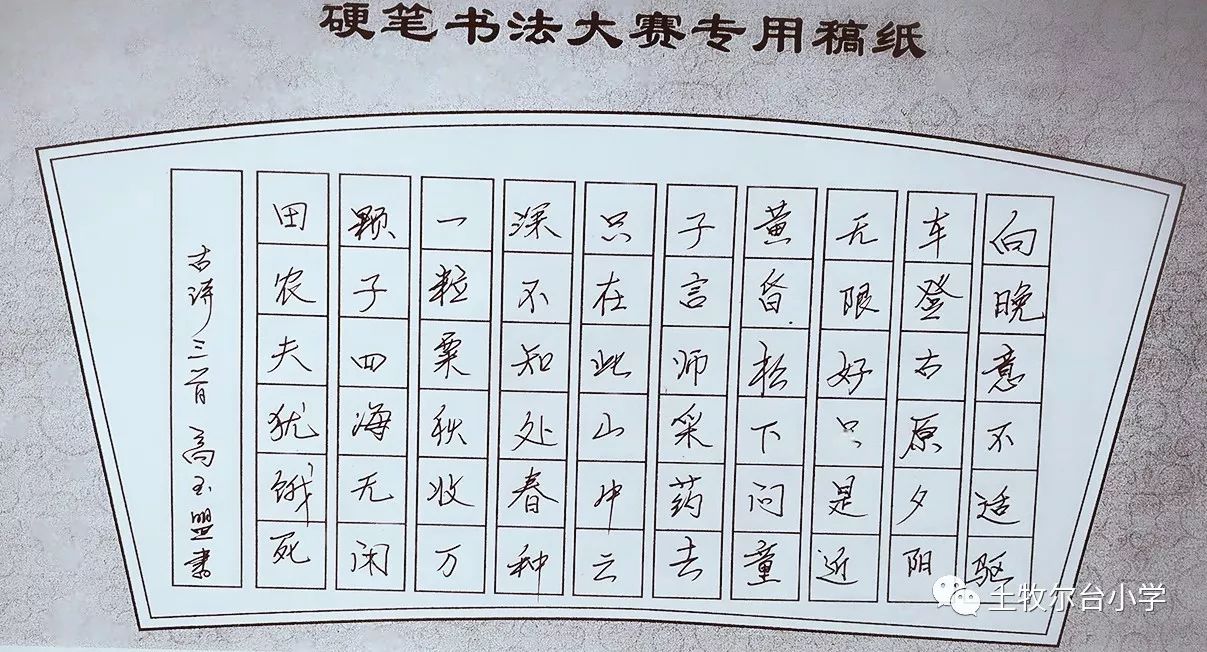 硬笔书法大赛专用稿纸
向晚意不适驱
车登古原夕阳
无限好只是近
黄昏松下问童
子言师采药去
只在此山中云
深不知处春种
一粒粟秋收万
颗子四海无闲
田农夫犹饿死
古诗三首 高玉盟书
土牧尔台小学